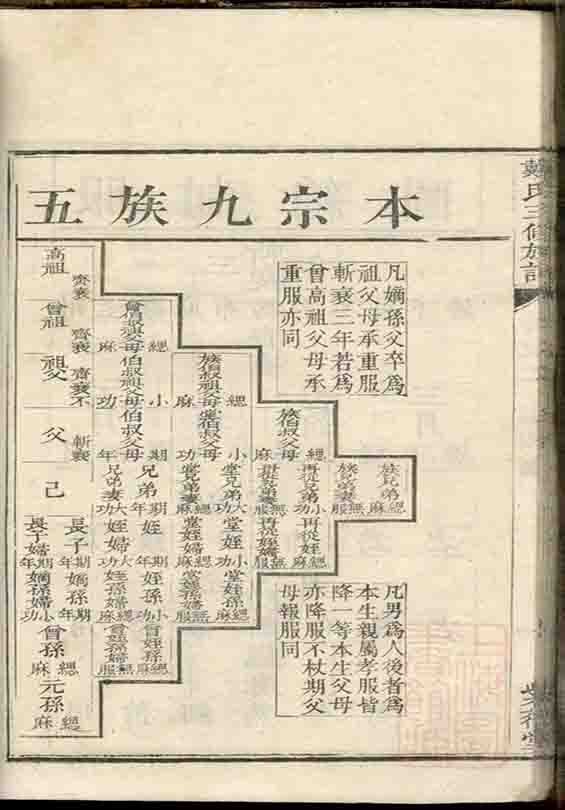 本宗九族五
凡嫡孫父卒爲
祖父母承重服
斬衰三年若爲
曾高祖父母承
重服亦同
族兄弟
緦麻
族兄弟妻
無服
族伯叔父母
緦麻
再從兄弟
小功
再從兄弟妻
無服
再從姪
緦麻
再從姪婦
無服
族伯叔祖父母
緦麻
堂伯叔父母
小功
堂兄弟
大功
堂兄弟妻
緦麻
堂姪
小功
堂姪婦
緦麻
堂姪孫
緦麻
堂姪孫婦
無服
曾伯叔祖父母
緦麻
伯叔祖父母
小功
伯叔父母
期年
兄弟
期年
兄弟妻
大功
姪
期年
姪婦
大功
姪孫
小功
姪孫婦
緦麻
曾姪孫
緦麻
曾姪孫婦
無服
高祖
齊衰
曾祖
齊衰
祖父
齊衰不
父
斬衰
己
長子
期年
長子婦
期年
嫡孫
期年
嫡孫婦
小功
曾孫
緦麻
元孫
緦麻
凡男爲人後者爲
本生親屬孝服皆
降一等本生父母
亦降服不杖期父
母報服同